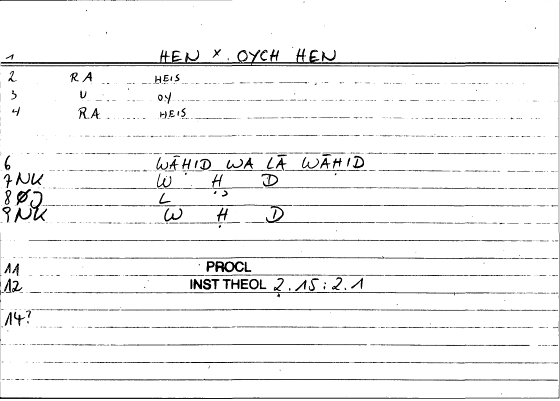 1 HEN × OYCH HEN
2 RA HEIS
3 U OY
4 RA HEIS
6 WĀḤID WA LĀ WĀḤID
7 NK W Ḥ D
8 ØJ L
9 NK W Ḥ D
11 PROCL
12 INST THEOL 2.15:2.1
14?